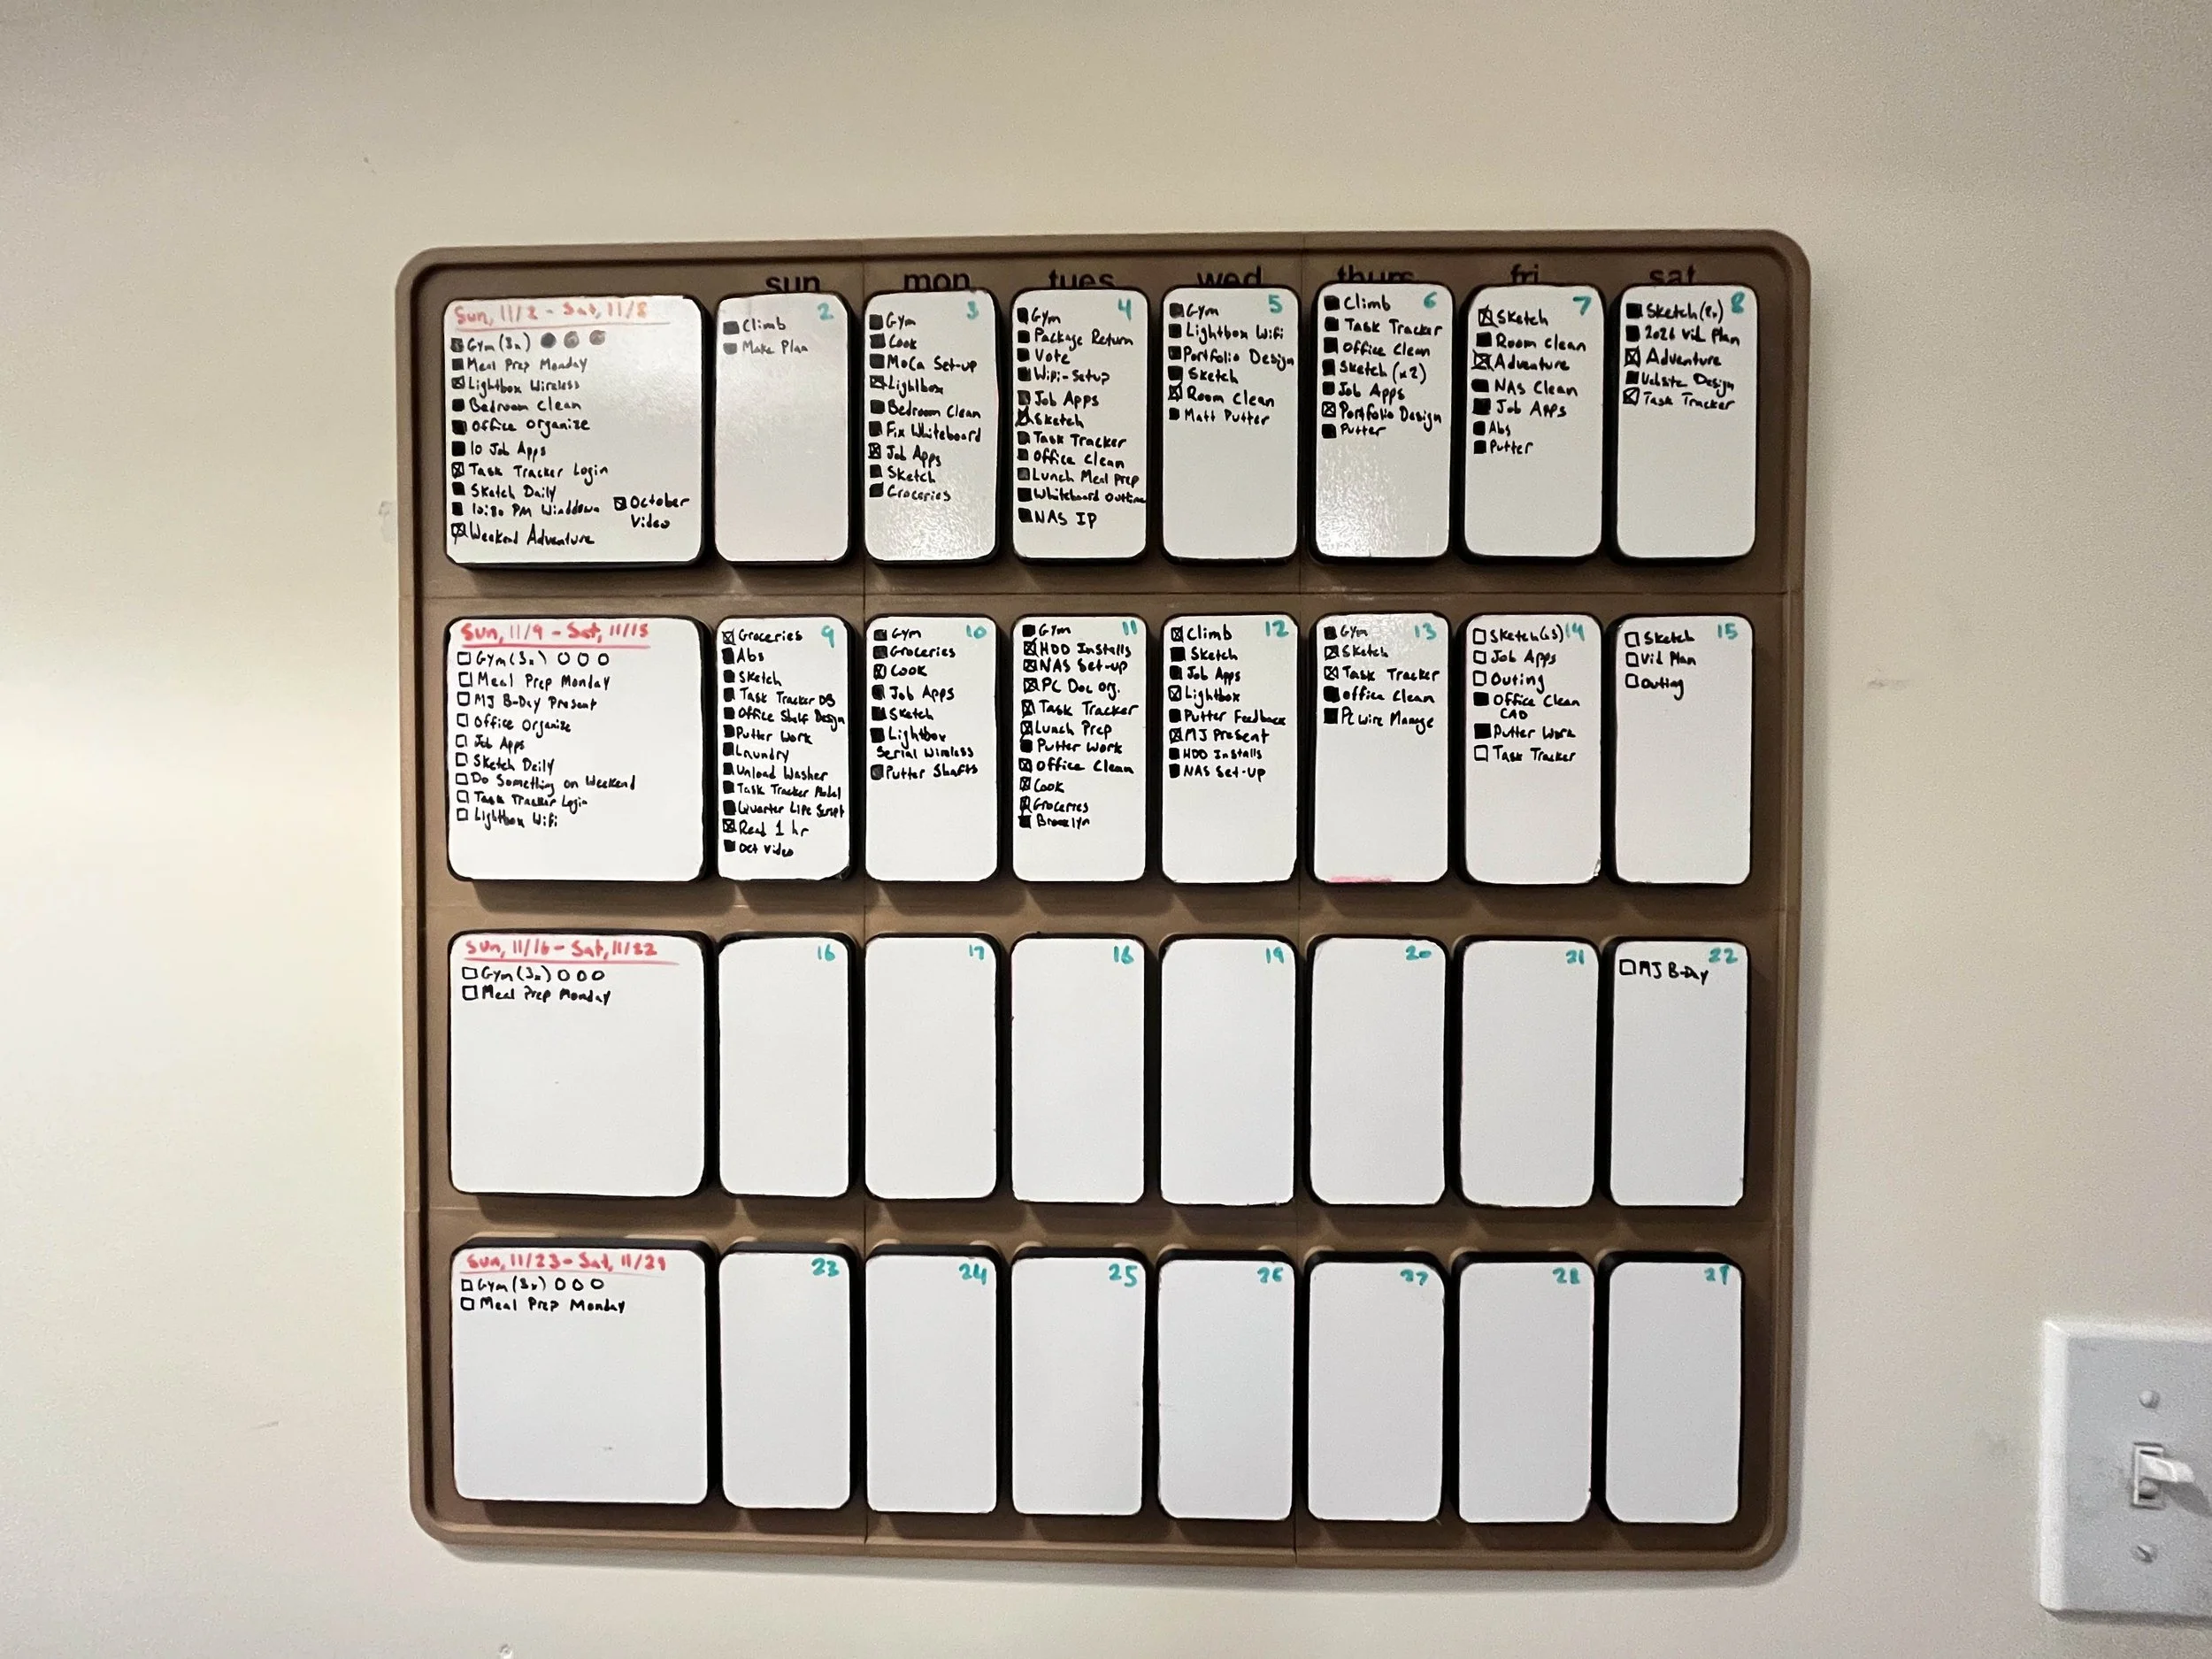 sun mon tues wed thurs fri sat
Sun, 11/2 - Sat, 11/8
Gym (3x)
Meal Prep Monday
Lightbox Wireless
Bedroom Clean
Office Organize
10 Job Apps
Task Tracker Login
Sketch Daily
10:30 PM Winddown
Weekend Adventure
October
Video
2
Climb
Make Plan
3
Gym
Cook
MoCa Set-up
Lightbox
Bedroom Clean
Fix Whiteboard
Job Apps
Sketch
Groceries
4
Gym
Package Return
Vote
Wifi-Setup
Job Apps
Sketch
Task Tracker
Office Clean
Lunch Meal Prep
Whiteboard Outline
NAS IP
5
Gym
Lightbox Wifi
Portfolio Design
Sketch
Room Clean
Matt Putter
6
Climb
Task Tracker
Office Clean
Sketch (x2)
Job Apps
Portfolio Design
Putter
7
Sketch
Room Clean
Adventure
NAS Clean
Job Apps
Abs
Putter
8
Sketch (2x)
2026 Vid Plan
Adventure
Website Design
Task Tracker
Sun, 11/9 - Sat, 11/15
Gym (3x)
Meal Prep Monday
MJ B-Day Present
Office Organize
Job Apps
Sketch Daily
Do Something on Weekend
Task Tracker Login
Lightbox Wifi
9
Groceries
Abs
Sketch
Task Tracker DB
Office Shelf Design
Putter Work
Laundry
Unload Washer
Task Tracker Model
Quarter Life Script
Read 1 hr
Oct Video
10
Gym
Groceries
Cook
Job Apps
Sketch
Lightbox
Serial Wireless
Putter Shafts
11
Gym
HDD Installs
NAS Set-up
PC Doc Org.
Task Tracker
Lunch Prep
Putter Work
Office Clean
Cook
Groceries
Brooklyn
12
Climb
Sketch
Job Apps
Lightbox
Putter Feedback
MJ Present
HDD Installs
NAS Set-up
13
Gym
Sketch
Task Tracker
Office Clean
PC Wire Manage
14
Sketch
Job Apps
Outing
Office Clean
CAD
Putter Work
Task Tracker
15
Sketch
Vid Plan
Outing
Sun, 11/16 - Sat, 11/22
Gym (3x)
Meal Prep Monday
16
17
18
19
20
21
22
MJ B-Day
Sun, 11/23 - Sat, 11/29
Gym (3x)
Meal Prep Monday
23
24
25
26
27
28
29